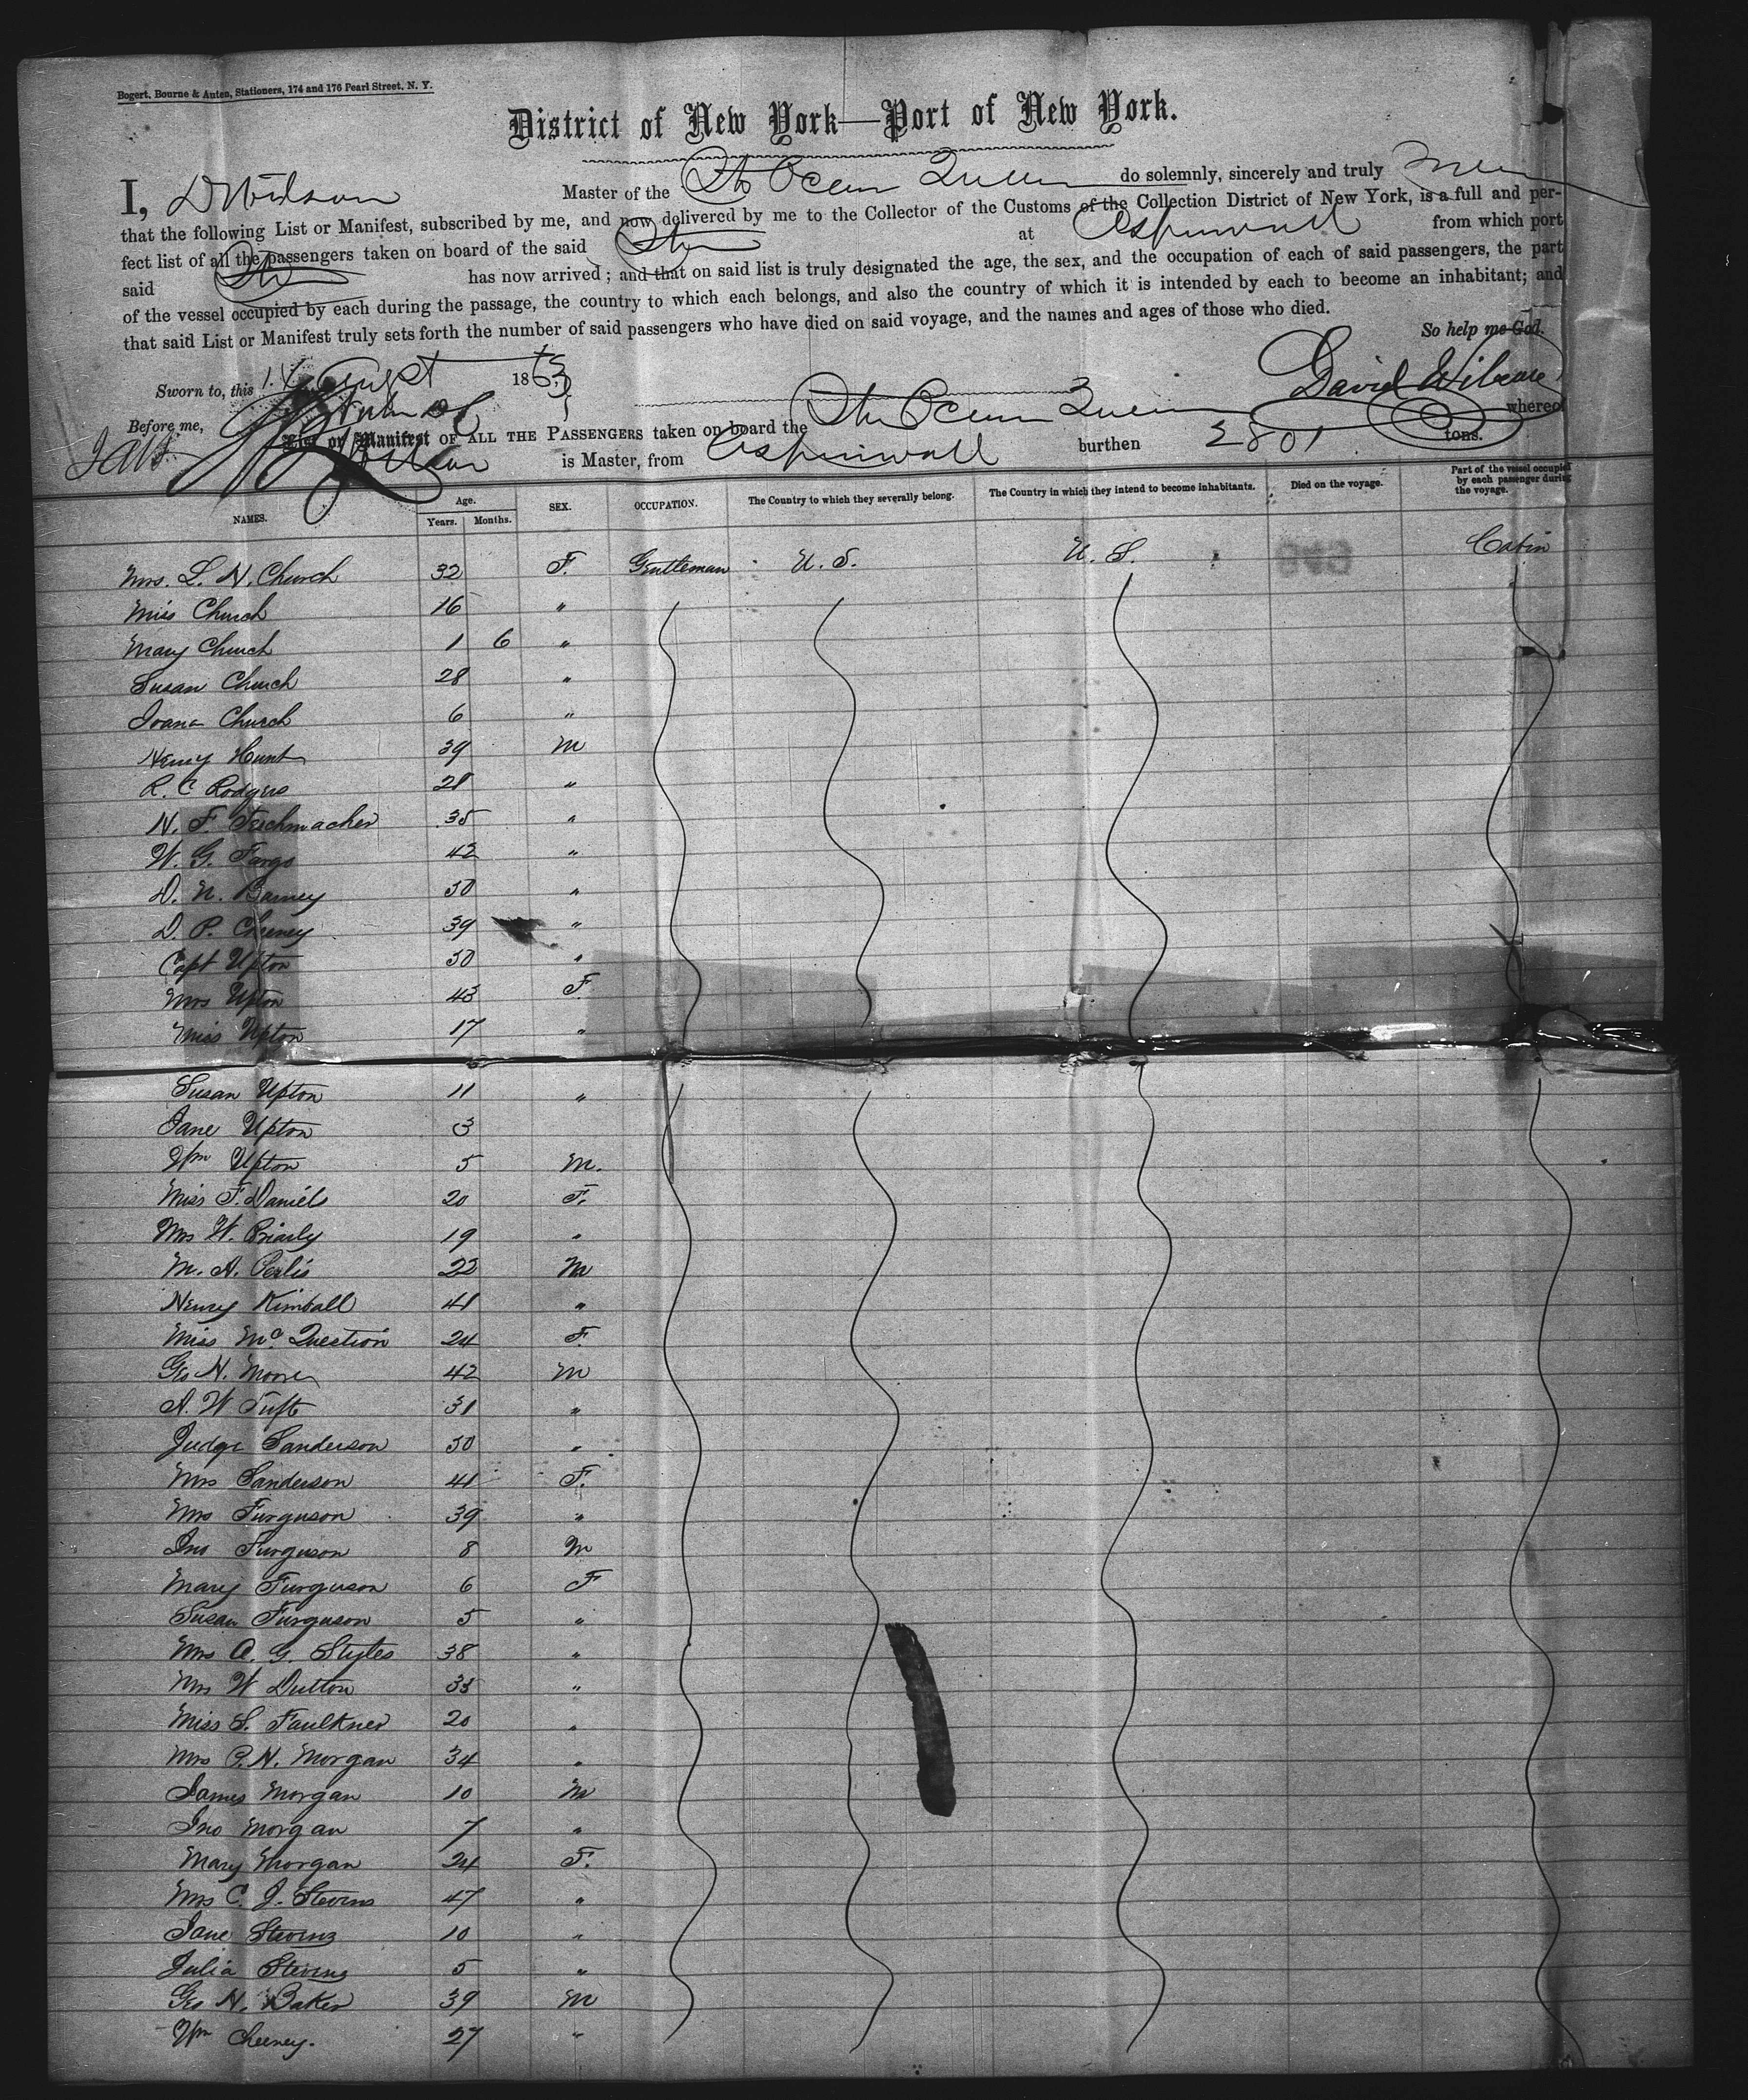 Bogert, Bourne & Auten, Stationers, 174 and 176 Pearl Street, N. Y.
District of New York—Port of New York.
I, D Wilson Master of the Str Ocean Queen do solemnly, sincerely and truly swear
that the following List or Manifest, subscribed by me, and now delivered by me to the Collector of the Customs of the Collection District of New York, is a full and per-
fect list of all the passengers taken on board of the said Str at Aspinwall from which port
said Str has now arrived; and that on said list is truly designated the age, the sex, and the occupation of each of said passengers, the part
of the vessel occupied by each during the passage, the country to which each belongs, and also the country of which it is intended by each to become an inhabitant; and
that said List or Manifest truly sets forth the number of said passengers who have died on said voyage, and the names and ages of those who died.
So help me God.
Sworn to, this 14 August 1863
David Wilson
Before me,
List or Manifest OF ALL THE PASSENGERS taken on board the Str Ocean Queen whereof
Wilson is Master, from Aspinwall burthen 2801 tons.
NAMES. Age. Years. Months. SEX. OCCUPATION. The Country to which they severally belong. The Country in which they intend to become inhabitants. Died on the voyage. Part of the vessel occupied by each passenger during the voyage.
Mrs. L. N. Church 32 F. Gentleman U. S. U. S. Cabin
Miss Church 16 "
Mary Church 1 6 "
Susan Church 28 "
Ioana Church 6 "
Henry Hunt 39 M
R. C Rodgers 28 "
H. F. Teschmacher 35 "
W. G. Fargo 42 "
D. N. Barney 50 "
D. P. Cheeney 39 "
Capt Upton 50 "
Mrs Upton 43 F.
Miss Upton 17 "
Susan Upton 11 "
Jane Upton 3
Wm Upton 5 M.
Miss F. Daniels 20 F.
Mrs W. Briarly 19 "
M. A. 23 M
Henry Kimball 41 "
Miss Mc. Question 24 F.
Geo H. Moore 42 M
A. W Tufts 31 "
Judge Sanderson 50 "
Mrs Sanderson 41 F.
Mrs Furguson 39 "
Jno Furguson 8 M
Mary Furguson 6 F
Susan Furguson 5 "
Mrs A. G. Styles 38 "
Mrs W Dutton 33 "
Miss S. Faulkner 20 "
Mrs P. H. Morgan 34 "
James Morgan 10 M
Jno Morgan 7 "
Mary Morgan 24 F.
Mrs C. J. Stevens 47 "
Jane Stevens 10 "
Julia Stevens 5 "
Geo H. Baker 39 M
Wm Cheeney. 27 "